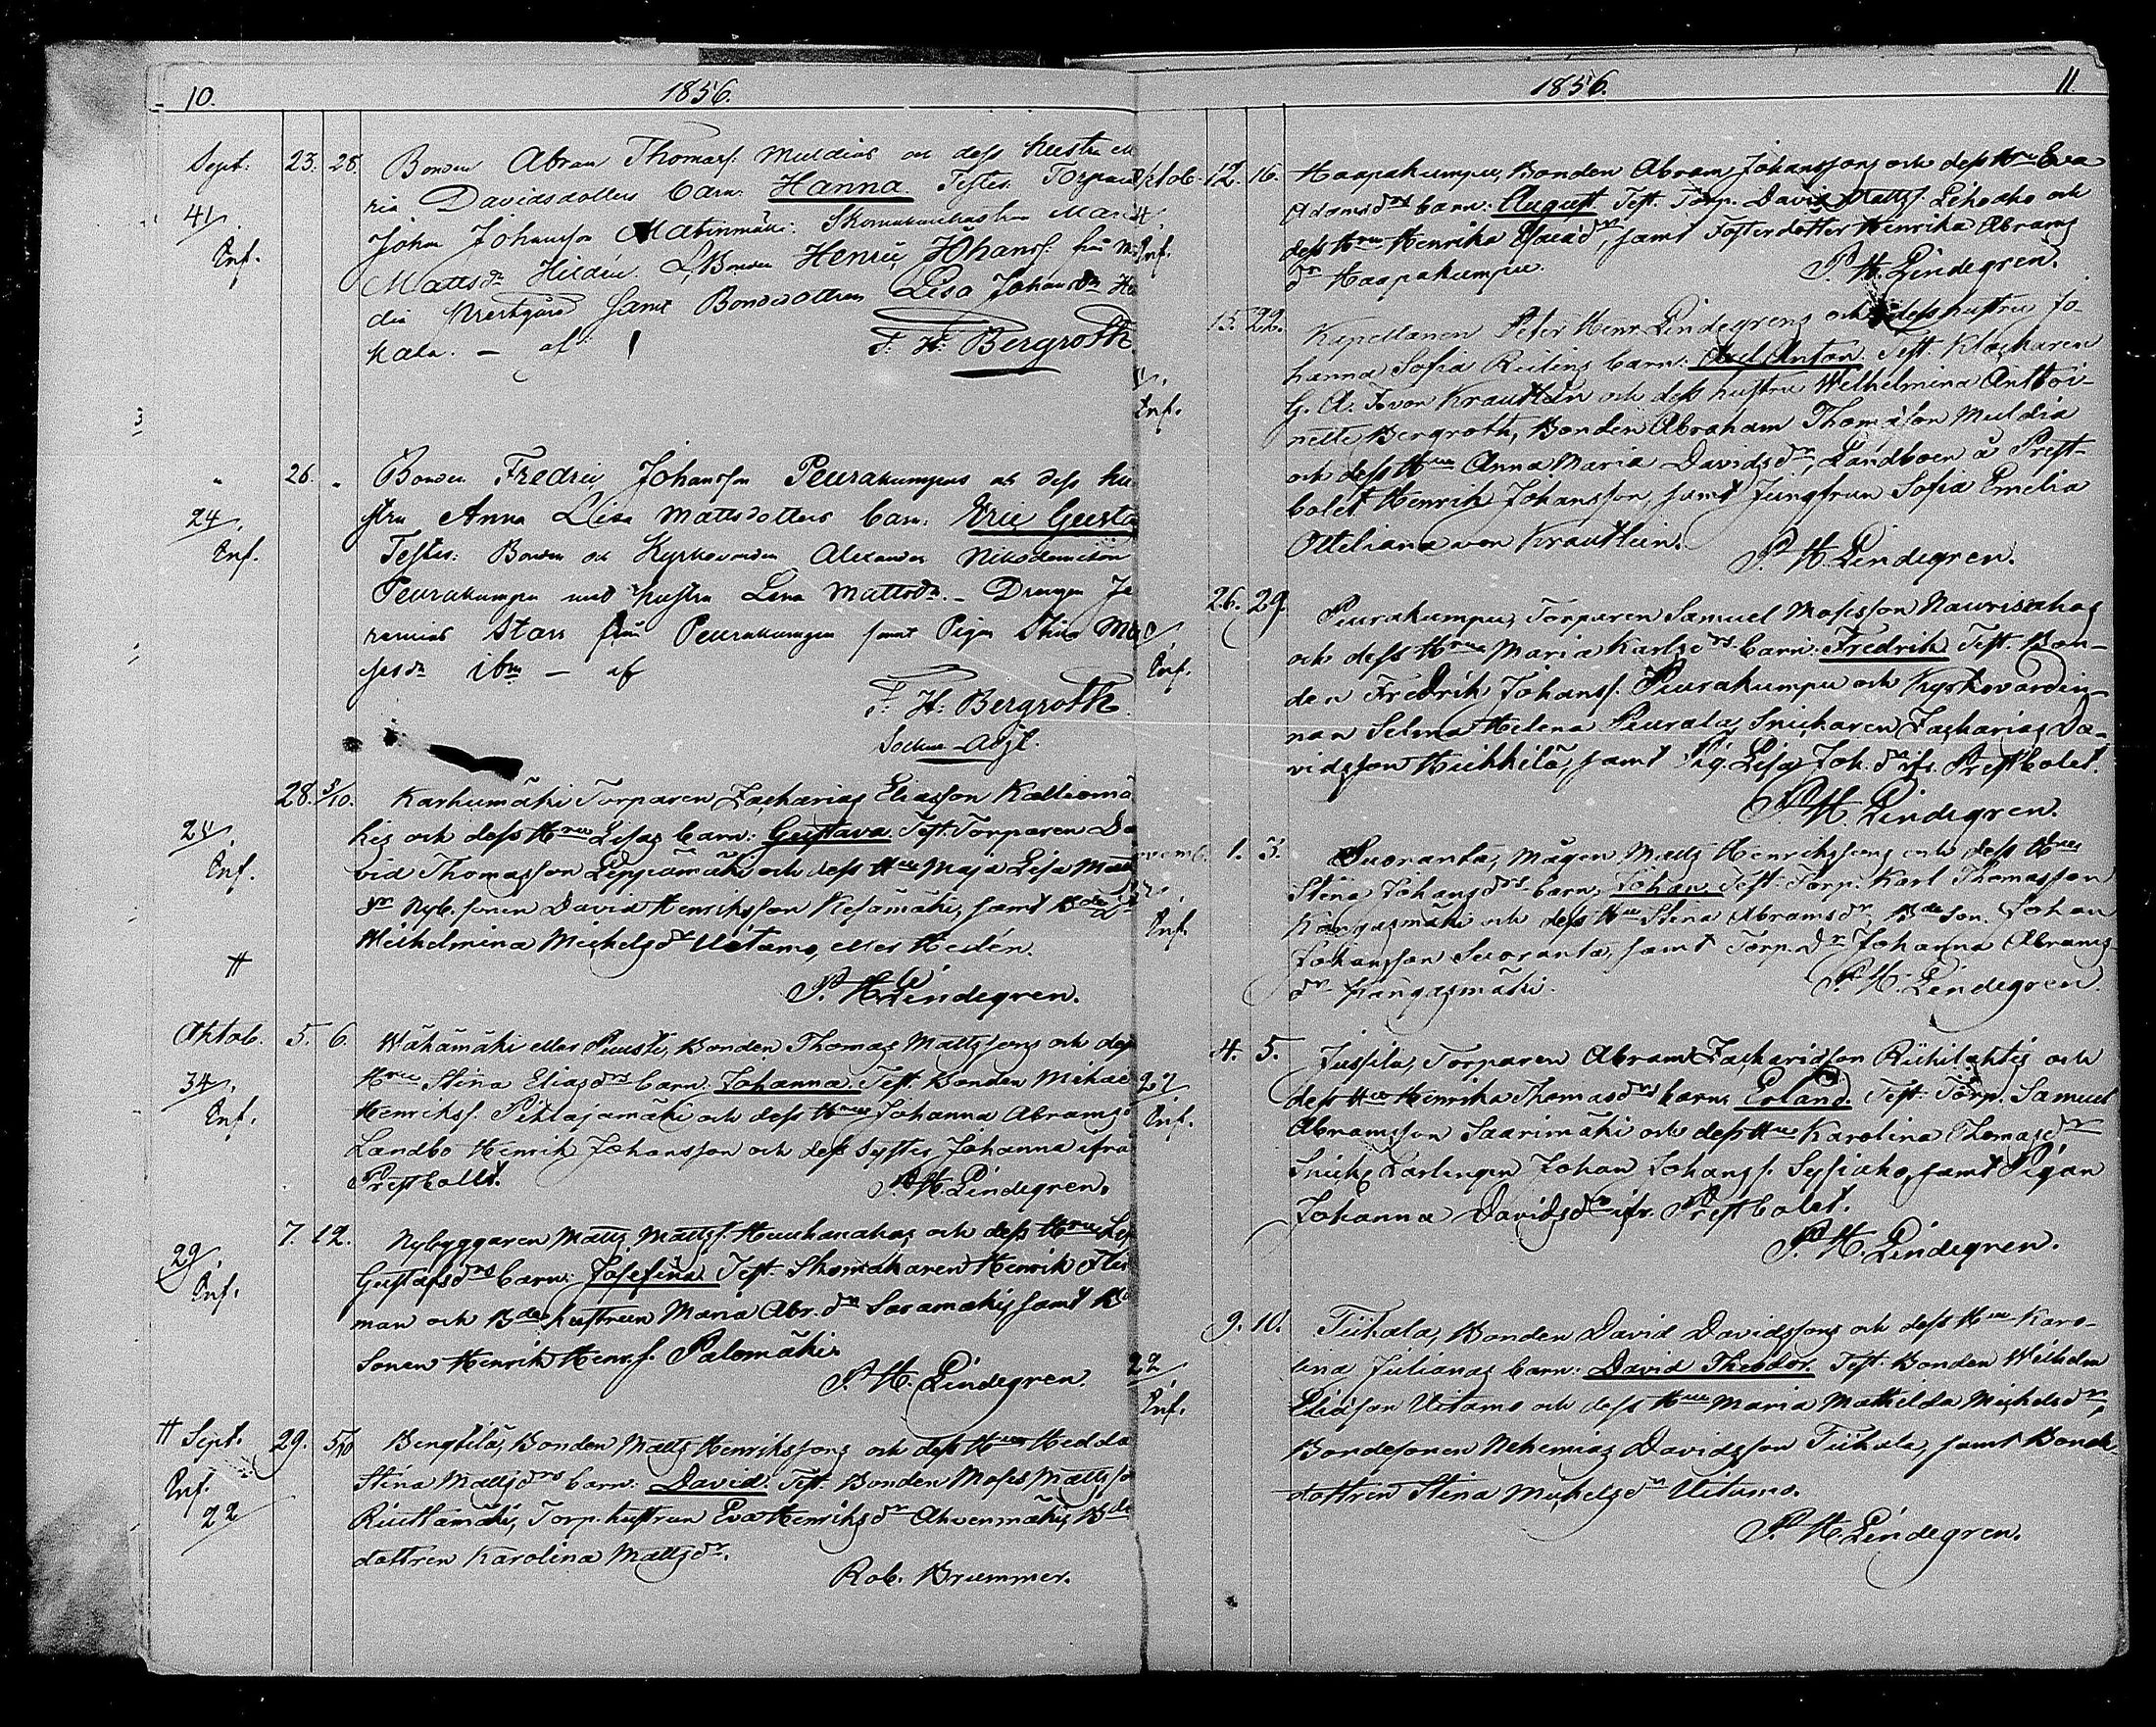 10. 1856.
Sept. 23. 28. Bonden Abram Thomass. Muldias och dess hustru M
ria Davidsdotters barn: Hanna. Testes: Torparen
41. Johan Johansson Matinmäki. Skomakarehustrun Mar
Inf. Mattsdr Hildén. Bonden Henric Johanss. från M
dia Prestgård samt Bondedottren Lisa Johansdr
kala. – af F. H. Bergroth
" 26. " Bonden Fredric Johansson Peurakumpus och dess hu
stru Anna Lisa Mattsdotters barn: Eric Gusta
24. Testes: Bonden och Kyrkovärden Alexander Nikodemusson
Inf. Peurakumpu med hustru Lena Mattsdr. – Drengen Je
remias Starr från Peurakumpu samt Pigan Stina Mo
sesdr ibm – af
F. H. Bergroth
Sockne-Adjt.
28. 3/10. Karhumäki Torparen Zacharias Eliasson Kalliomä
kis och dess Hru Lisas barn: Gustava. Test. Torparen Da
25. vid Thomasson Leppämäki och dess Hru Maja Lisa Matts
Inf. dr Nyb. sonen David Henriksson Kesämäki, samt Bdedr
Wilhelmina Michelsdr Uitamo, eller Hedén.
# P. H. Lindegren.
Oktob. 5. 6. Wähämäki eller Puusti, Bonden Thomas Mattssons och dess
34. Hru Stina Eliasdrs barn: Johanna. Test. Bonden Mikae
Inf. Henrikss. Pihlajamäki och dess Hru Johanna Abramsd
Landbo Henrik Johansson och dess syster Johanna ifrå
Prestbolet. P. H. Lindegren.
7. 12. Nybyggaren Matts Mattss. Huuhanahos och dess Hru Lis
29. Gustafsdrs barn: Josefina. Test. Skomakaren Henrik
Inf. man och Bdehustrun Maria Abr. dr Saramäki, samt Bd
Sonen Henrik Henrs. Palomäki.
P. H. Lindegren.
# Sept. 29. 5/10 Bengtilä, Bonden Matts Henrikssons och dess Hrus Hedda
Inf. Stina Mattsdrs barn: David. Test. Bonden Moses Mattsso
22 Riuttamäki, Torp. hustrun Eva Henriksdr Ahvenmäki, Bde
dottren Karolina Mattsdr.
Rob. Brummer.
1856. 11.
Oktob. 12. 16. Haapakumpu, Bonden Abram Johanssons och dess Hru Eva
Adamsdrs barn: August Test. Torp. David Mattss. Lehoaho och
Inf. dess Hru Henrika Esaiædr, samt Fosterdotter Henrika Abrams
dr Haapakumpu. P. H. Lindegren.
15. 22. Kapellanen Peter Henr. Lindegrens och dess hustru Jo-
hanna Sofia Reilins barn: Axel Anton. Test. Klockaren
Inf. G. A. F. von Krautlein och dess hustru Wilhelmina Anttoi-
nette Bergroth, Bonden Abraham Thomasson Muldia
och dess Hru Anna Maria Davidsdr, Landboen å Prest-
bolet Henrik Johansson, samt Jungfrun Sofia Emelia
Otteliana von Krautlein.
P. H. Lindegren.
26. 29. Peurakumpu, Torparen Samuel Mosisson Naurisahos
och dess Hrus Maria Karlsdrs barn: Fredrik Test. Bon-
Inf. den Fredrik Johanss. Peurakumpu och Kyrkovärdin-
nan Selma Helena Peurala, Snickaren Zacharias Da-
vidsson Heikkilä, samt Pig. Lisa Joh. dr ifr. Prestbolet.
P. H. Lindegren.
Novemb. 1. 3. Suoranta, Mågen Matts Henrikssons och dess Hrus
Stina Johansdrs barn, Johan Test. Torp. Karl Thomasson
Inf. Kangasmäki och dess Hru Stina Abramsdr, Bdeson. Johan
Johansson Suoranta, samt Torp. dr Johanna Abrams-
dr Kangasmäki. P. H. Lindegren.
4. 5. Jussila, Torparen Abram Zachariasson Riihilahtis och
27. dess Hru Henrika Thomasdrs barn: Erland. Test. Torp. Samuel
Inf. Abramsson Saarimäki och dess Hru Karolina Thomasdr
Snick. Lärlingen Johan Johanss. Sysiaho, samt Pigan
Johanna Davidsdr ifr. Prestbolet.
P. H. Lindegren.
9. 10. Tiihala, Bonden David Davidssons och dess Hru Karo-
22. lina Julianas barn: David Theodor. Test. Bonden Wilhelm
Inf. Eliasson Uitamo och dess Hru Maria Mathilda Michelsdr,
Bondesonen Nehemias Davidsson Tiihala, samt Bonde-
dottren Stina Michelsdr Uitamo.
P. H. Lindegren.